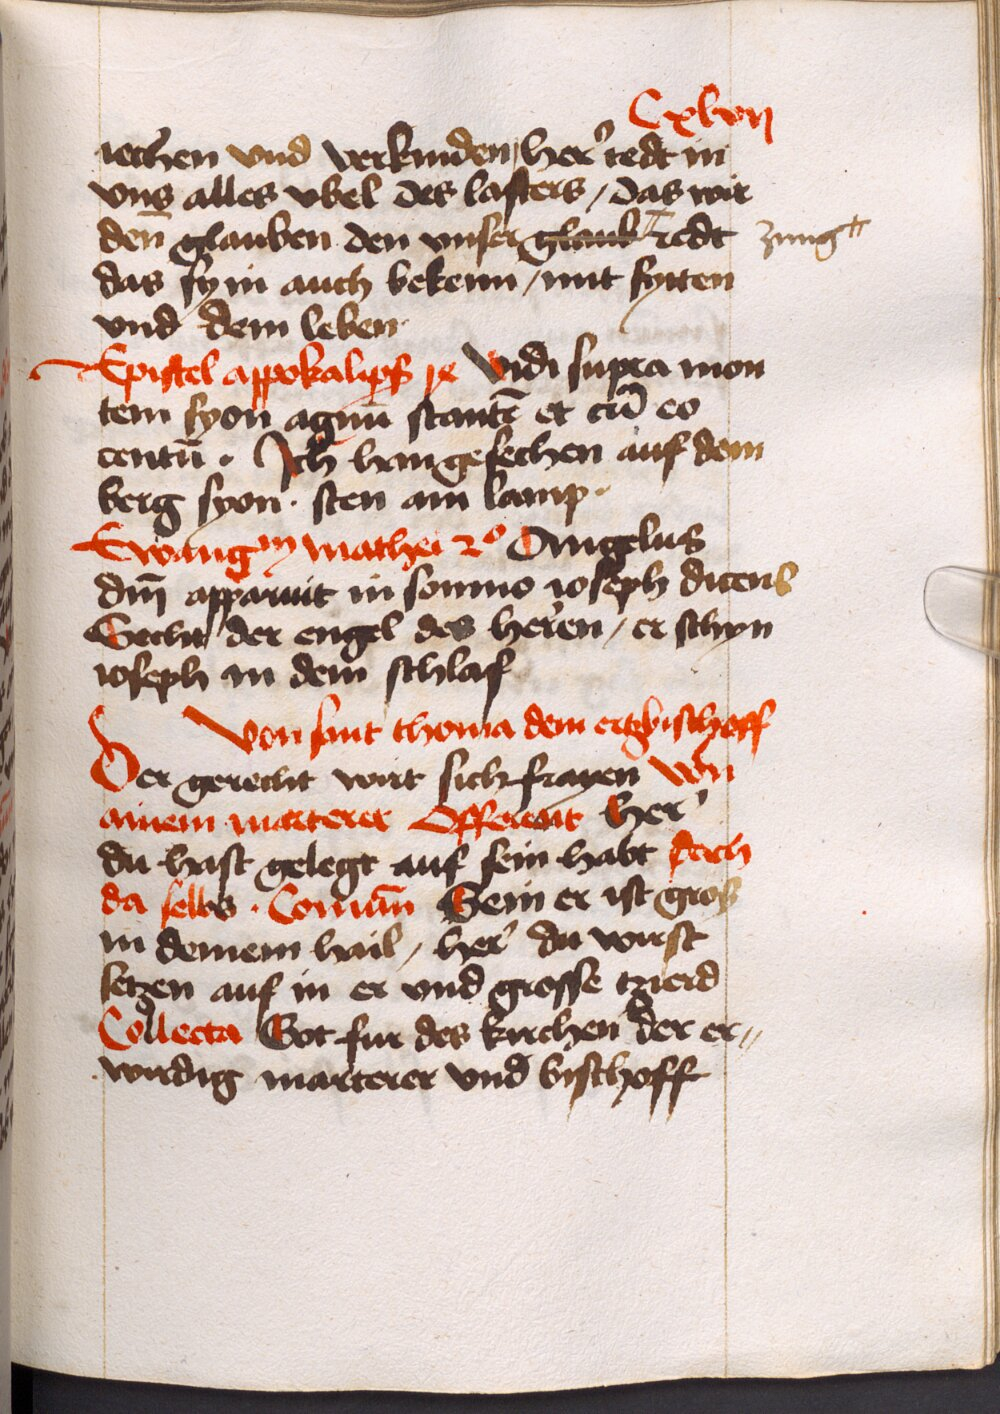 Cxlvij
iechen vnd verkinden / her' tedt in
vns alles vbel des lasters / das wir
den glauben den vnser glaub redt zung
das sy in auch bekenn / mit sytten
vnd dem leben
Epistel appokalips ix Vidi supra mon
tem syon agnū stantē et cū eo
centū . Ich han gesechen auf dem
berg syon . sten am lamp .
Ewangm mathei 2o Angelus
dm̄ apparuit in sommo ioseph dicens
Secht / der engel des heren / er schyn
ioseph in dem schlaf
Von sant thoma dem ertzbischoff
Der gerecht wirt sich frayen Von
ainem marterer Offerent Her'
du hast gelegt auf sein habt serch
da selbs . Comūn Sein er ist gros
in deinem hail / her' du wirst
setzen auf in er vnd grosse tzierd
Collecta Got fur des kirchen der er„
wirdig marterer vnd bischoff